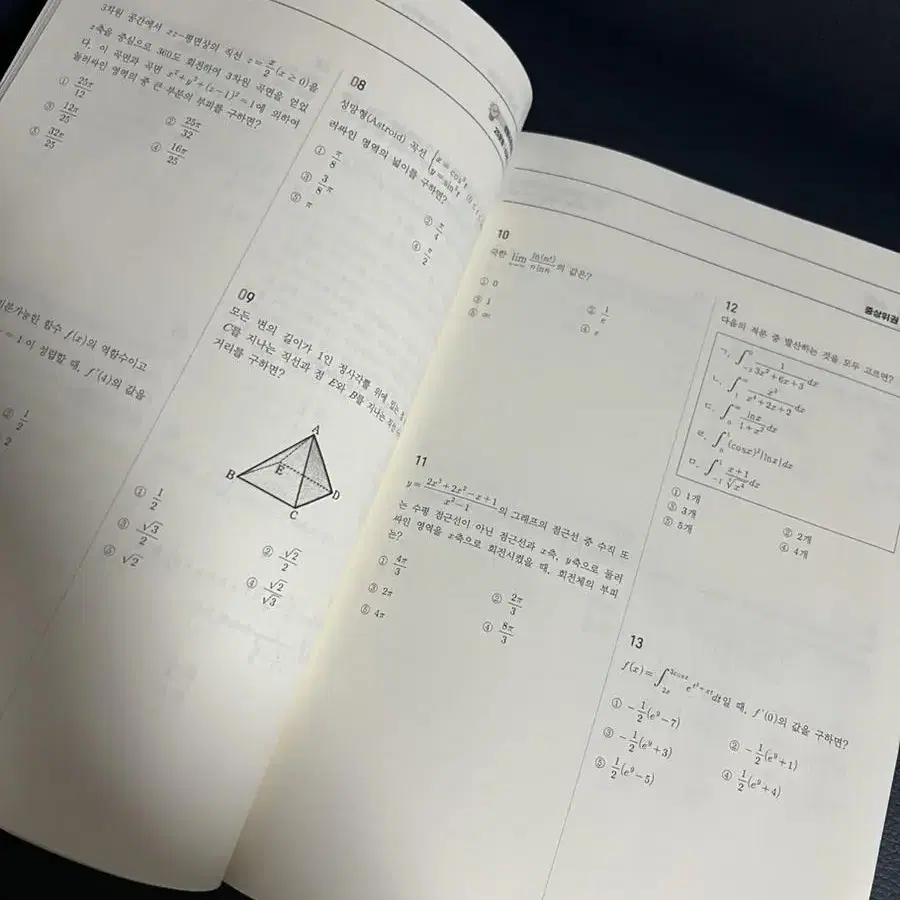 3차원 공간에서 xz-평면상의 직선 z = x/2 (x ≥ 0)을
z축을 중심으로 360도 회전하여 3차원 곡면을 얻었
다. 이 곡면과 곡면 x²+y²+(z-1)²=1에 의하여
둘러싸인 영역의 중 큰 부분의 부피를 구하면?
① 25π/12
② 25π/32
③ 12π/25
④ 16π/25
⑤ 32π/25
미분가능한 함수 f(x)의 역함수이고
=1이 성립할 때, f'(4)의 값을
② 1/2
2
08
성망형(Astroid) 곡선 { x = cos³t
y = sin³t
러싸인 영역의 넓이를 구하면?
① π/8
② π/4
③ 3/8 π
④ π/2
⑤ π
09
모든 변의 길이가 1인 정사각뿔 위에 있는
C를 지나는 직선과 점 E와 B를 지나는
거리를 구하면?
A
B
E
D
C
① 1/2
② √2/2
③ √3/2
④ √2/√3
⑤ √2
10
극한 lim ln(n!)/(n ln n) 의 값은?
① 0
② 1/e
③ 1
④ e
⑤ ∞
11
y = (2x³+2x²-x+1)/(x²-1) 의 그래프의 점근선 중 수직 또
는 수평 점근선이 아닌 점근선과 x축, y축으로 둘러
싸인 영역을 x축으로 회전시켰을 때, 회전체의 부피
는?
① 4π/3
② 2π/3
③ 2π
④ 8π/3
⑤ 4π
중상위권
12
다음의 적분 중 발산하는 것을 모두 고르면?
ㄱ. ∫₋₂⁰ 1/(3x²+6x+3) dx
ㄴ. ∫₁^∞ x³/(x⁴+2x+2) dx
ㄷ. ∫₀^∞ lnx/(1+x²) dx
ㄹ. ∫₀¹ (cosx)²|lnx|dx
ㅁ. ∫₋₁¹ (x+1)/∛x⁴ dx
① 1개
② 2개
③ 3개
④ 4개
⑤ 5개
13
f(x) = ∫ e^(t²+xt) dt일 때, f'(0)의 값을 구하면?
① -1/2(e⁹-7)
② -1/2(e⁹+1)
③ -1/2(e⁹+3)
④ 1/2(e⁹+4)
⑤ 1/2(e⁹-5)